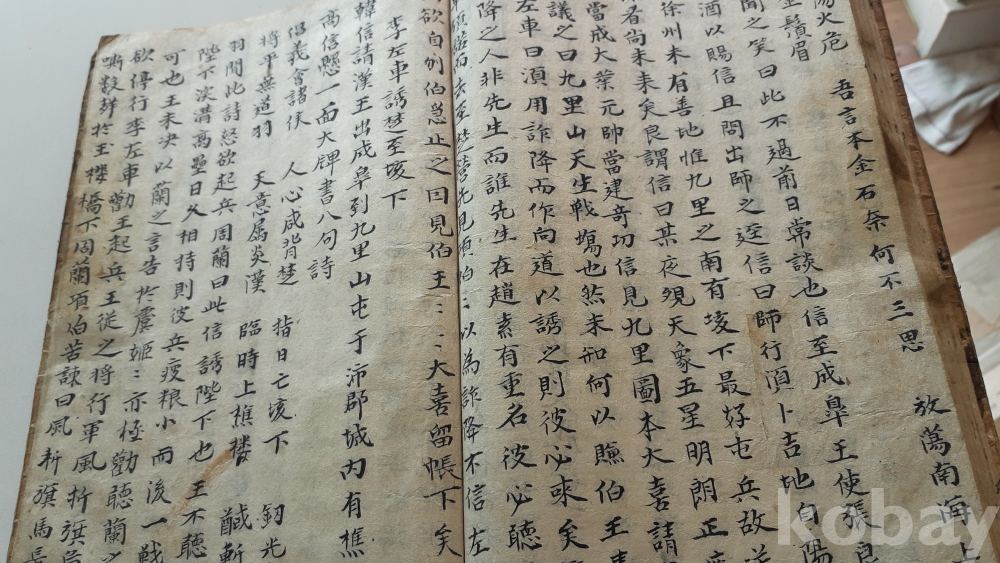 陽火危
吾言本金石奈何不三思
放蕩南海上
鬚眉
聞之笑曰此不過前日常談也信至成皐王使張良
酒以賜信且問出師之
信曰師行須卜吉地自
徐州未有善地惟九里之南有垓下最好屯兵故
者尚未来矣良謂信曰某夜覌天象五星明朗正
當成大業元帥當建竒功信見九里圖本大喜請
議之曰九里山天生戦塲也然未知何以賺伯王
左車曰須用詐降而作向道以誘之則彼心来矣
降之人非先生而誰先生在趙素有重名彼必聽
去至楚營先見項伯〻以為詐降不信左
欲自刎伯急止之因見伯王〻〻大喜留帳下矣
李左車誘楚至垓下
韓信請漢王出成皐到九里山屯于沛郡城内有樵
高信懸一面大牌書八句詩
倡義會諸侯 人心咸背楚 指日亡垓下 釼光
將平無道羽 天意属炎漢 臨時上樵楼 馘斬
羽聞此詩怒欲起兵周蘭曰此信誘陛下也王不聽
陛下深溝高壘日久相持則彼兵疫粮小而後一戦
可也王未决以蘭之言告於虞姬〻亦極勸聽蘭之
欲停行李左車勸王起兵王從之將行軍風折旗
嘶数拜於玉樓橋下周蘭項伯苦諫曰風折旗馬長